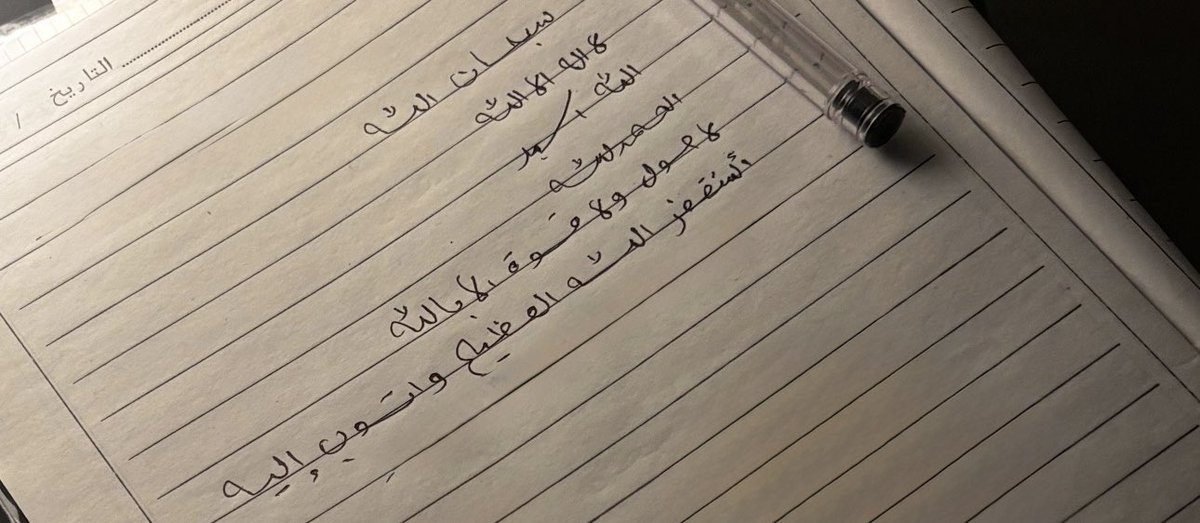 التاريخ /
سبحان الله
لا اله الا الله
الله اكبر
الحمدلله
لا حول ولا قوة الا بالله
أستغفر الله العظيم واتوب إليه